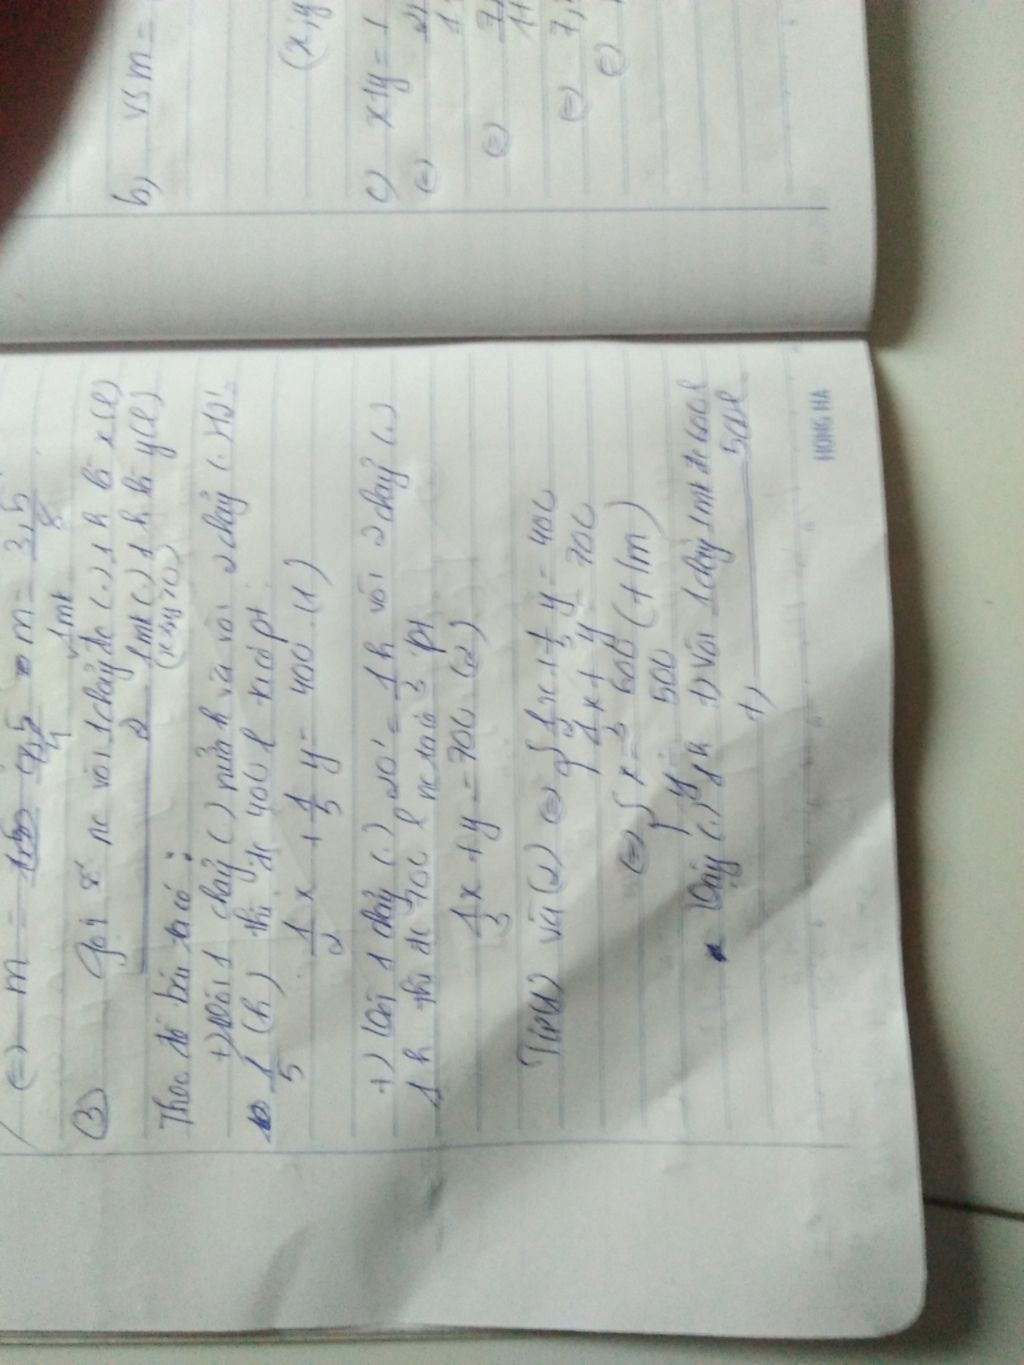 (=) m = m = 3,5/8
(3) Gọi nc vòi 1 chảy đc (.) 1h là x(l)
2 1mk (.) 1h là y(l)
(x; y>0)
Theo đề bài ta có:
+) Vòi 1 chảy (.) nửa h và vòi 2 chảy (.) 12' =
1/5 (h) thì đc 400 l ta có pt
1/2 x + 1/5 y = 400 (1)
+) Vòi 1 chảy (.) 20' = 1/3 h vòi 2 chảy (.)
1h thì đc 700 l nc ta có pt
1/3 x + y = 700 (2)
Từ (1) và (2) (=) { 1/2 x + 1/5 y = 400
1/3 x + y = 700
(=) { x = 600 (t/m)
y = 500
Vậy (.) 1h +) Vòi 1 chảy 1mk đc 600l
+) 500l
HONG HA
b, vs m =
(x; y
c) x + y = 1
(=)
(=) 7,
(=) 7,
(=)